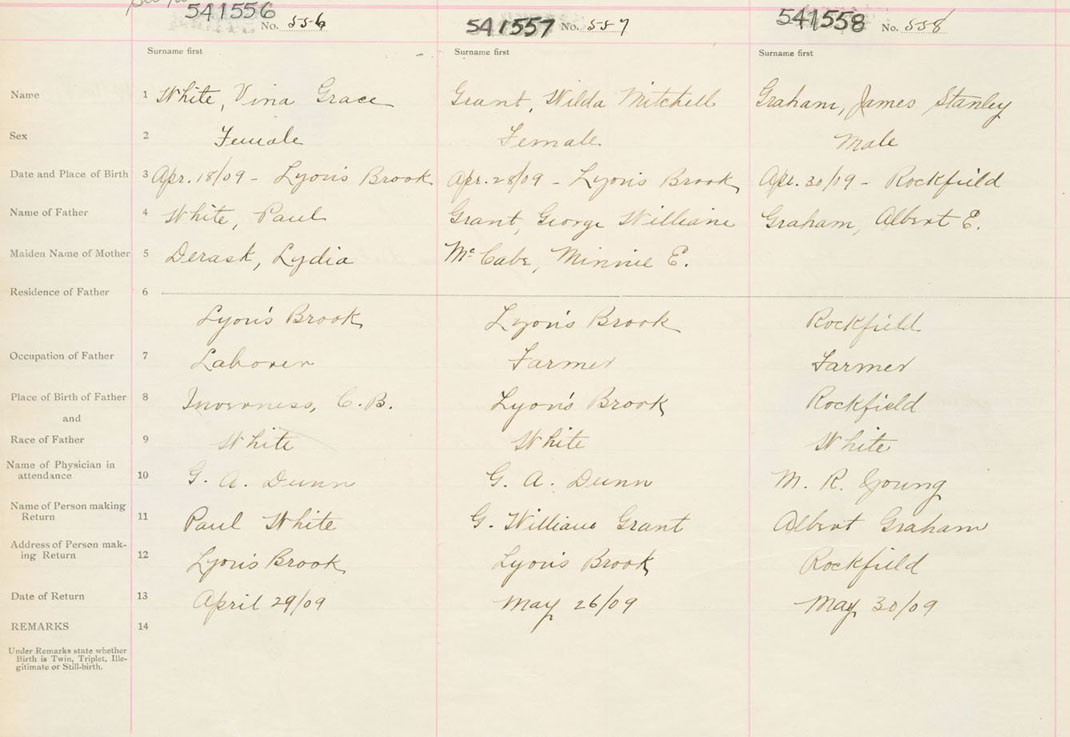 541556 No. 556 541557 No. 557 541558 No. 558
Surname first Surname first Surname first
Name 1 White, Vina Grace Grant, Wilda Mitchell Graham, James Stanley
Sex 2 Female Female Male
Date and Place of Birth 3 Apr. 18/09 - Lyon's Brook Apr. 28/09 - Lyon's Brook Apr. 30/09 - Rockfield
Name of Father 4 White, Paul Grant, George William Graham, Albert E.
Maiden Name of Mother 5 Derask, Lydia McCabe, Minnie E.
Residence of Father 6
Lyon's Brook Lyon's Brook Rockfield
Occupation of Father 7 Laborer Farmer Farmer
Place of Birth of Father 8 Inverness, C.B. Lyon's Brook Rockfield
and
Race of Father 9 White White White
Name of Physician in
attendance 10 G. A. Dunn G. A. Dunn M. R. Young
Name of Person making
Return 11 Paul White G. William Grant Albert Graham
Address of Person mak-
ing Return 12 Lyon's Brook Lyon's Brook Rockfield
Date of Return 13 April 29/09 May 26/09 May 30/09
REMARKS 14
Under Remarks state whether
Birth is Twin, Triplet, Ille-
gitimate or Still-birth.